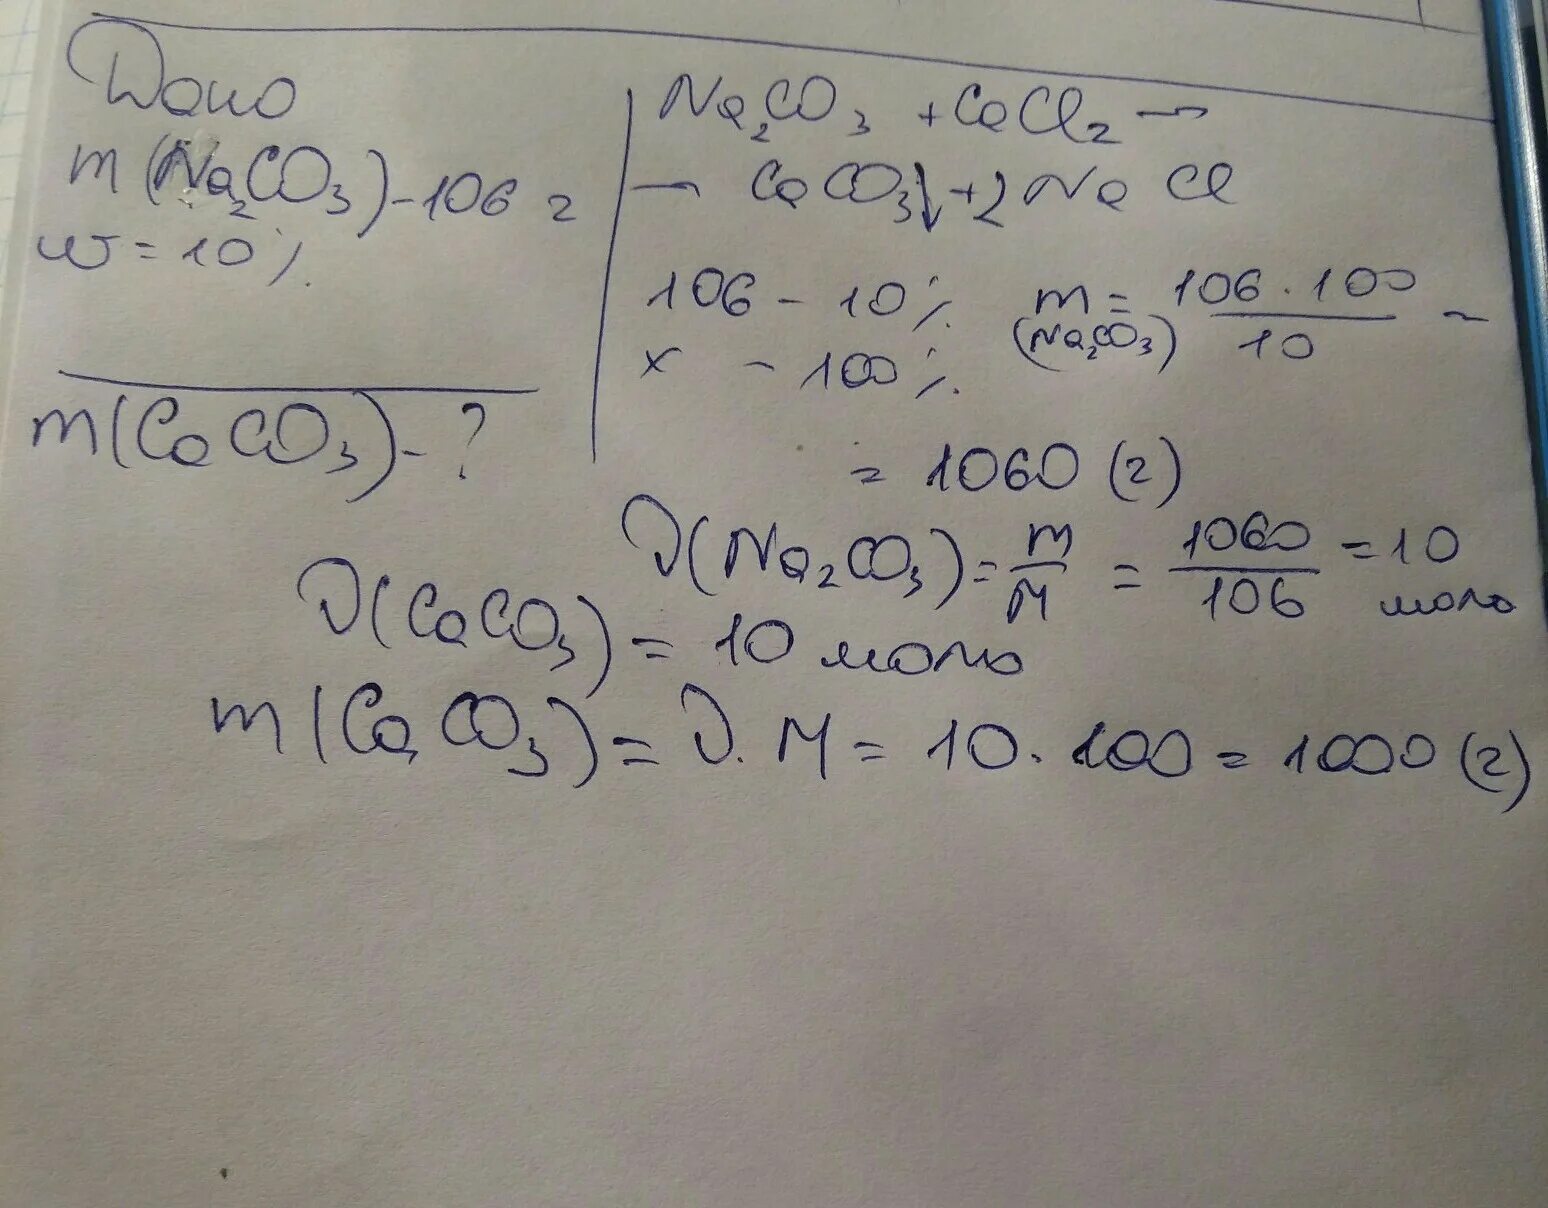 Дано
m(Na₂CO₃) - 106 г
w = 10%.
m(CaCO₃) - ?
Na₂CO₃ + CaCl₂ →
→ CaCO₃↓ + 2NaCl
106 - 10%.
x - 100%.
m(Na₂CO₃) = 106 · 100 / 10 =
= 1060 (г)
ν(Na₂CO₃) = m/M = 1060/106 = 10 моль
ν(CaCO₃) = 10 моль
m(CaCO₃) = ν · M = 10 · 100 = 1000 (г)